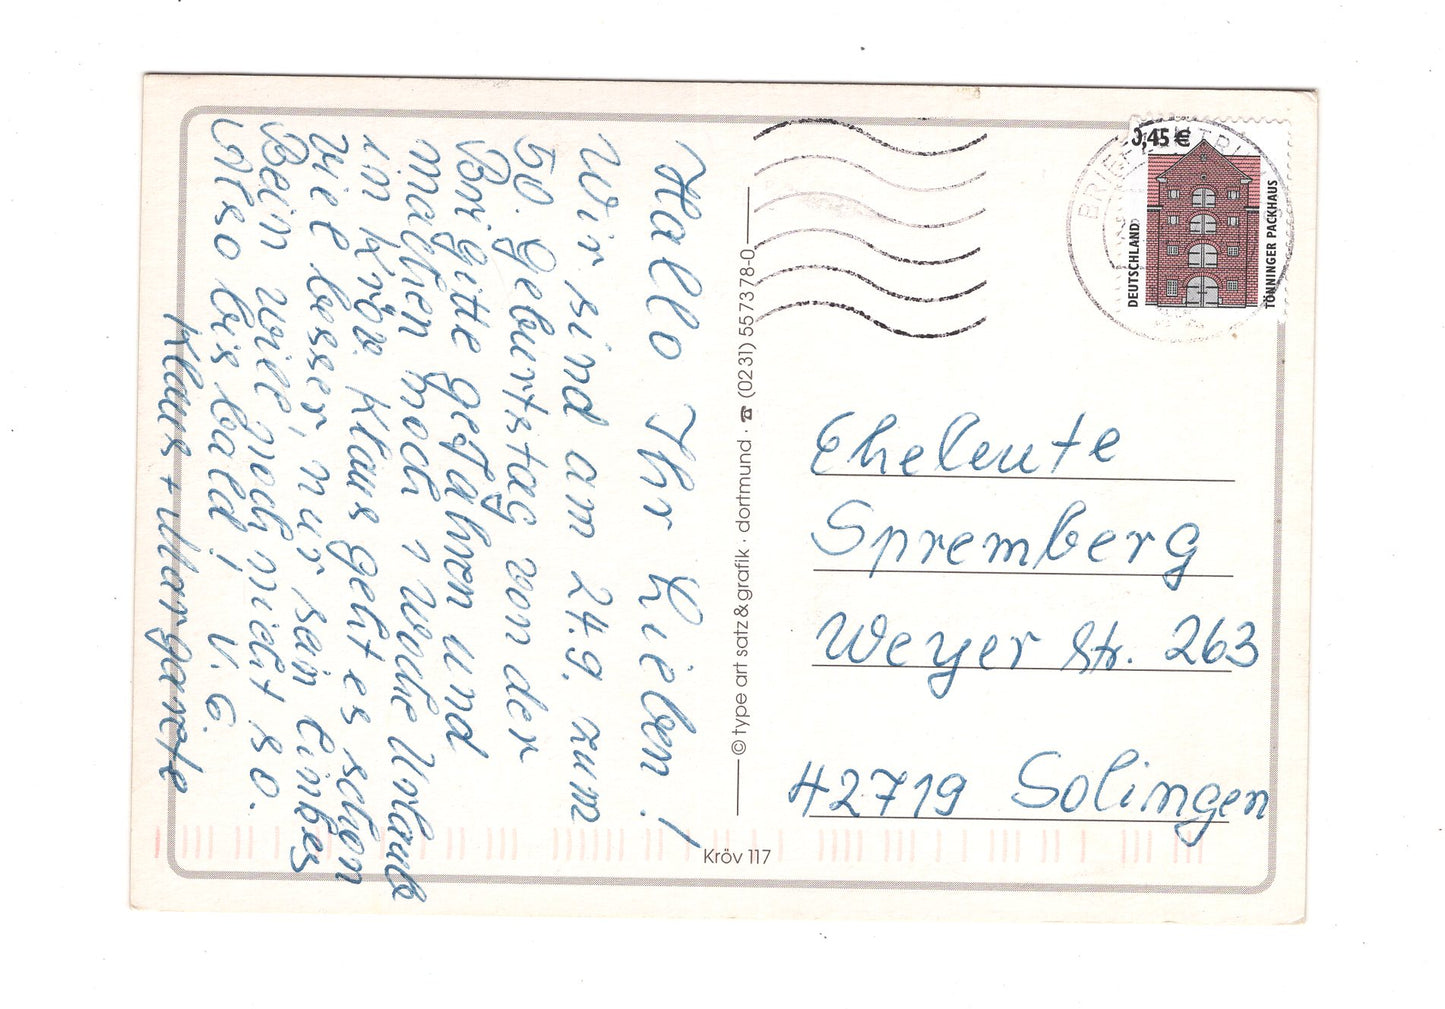 Hallo Ihr Lieben!
Wir sind am 24.9. zum
50. Geburtstag von der
Brigitte gefahren und
machen noch 1 Woche Urlaub
in Kröv. Klaus geht es schon
viel besser, nur sein linkes
Bein will noch nicht so.
Also bis bald! V. G.
Klaus + Margarete
© type art satz & grafik · dortmund · ☎ (0231) 557378-0
Kröv 117
0,45 €
DEUTSCHLAND
TÖNNINGER PACKHAUS
BRIEFZENTRUM
Eheleute
Spremberg
Weyer Str. 263
42719 Solingen